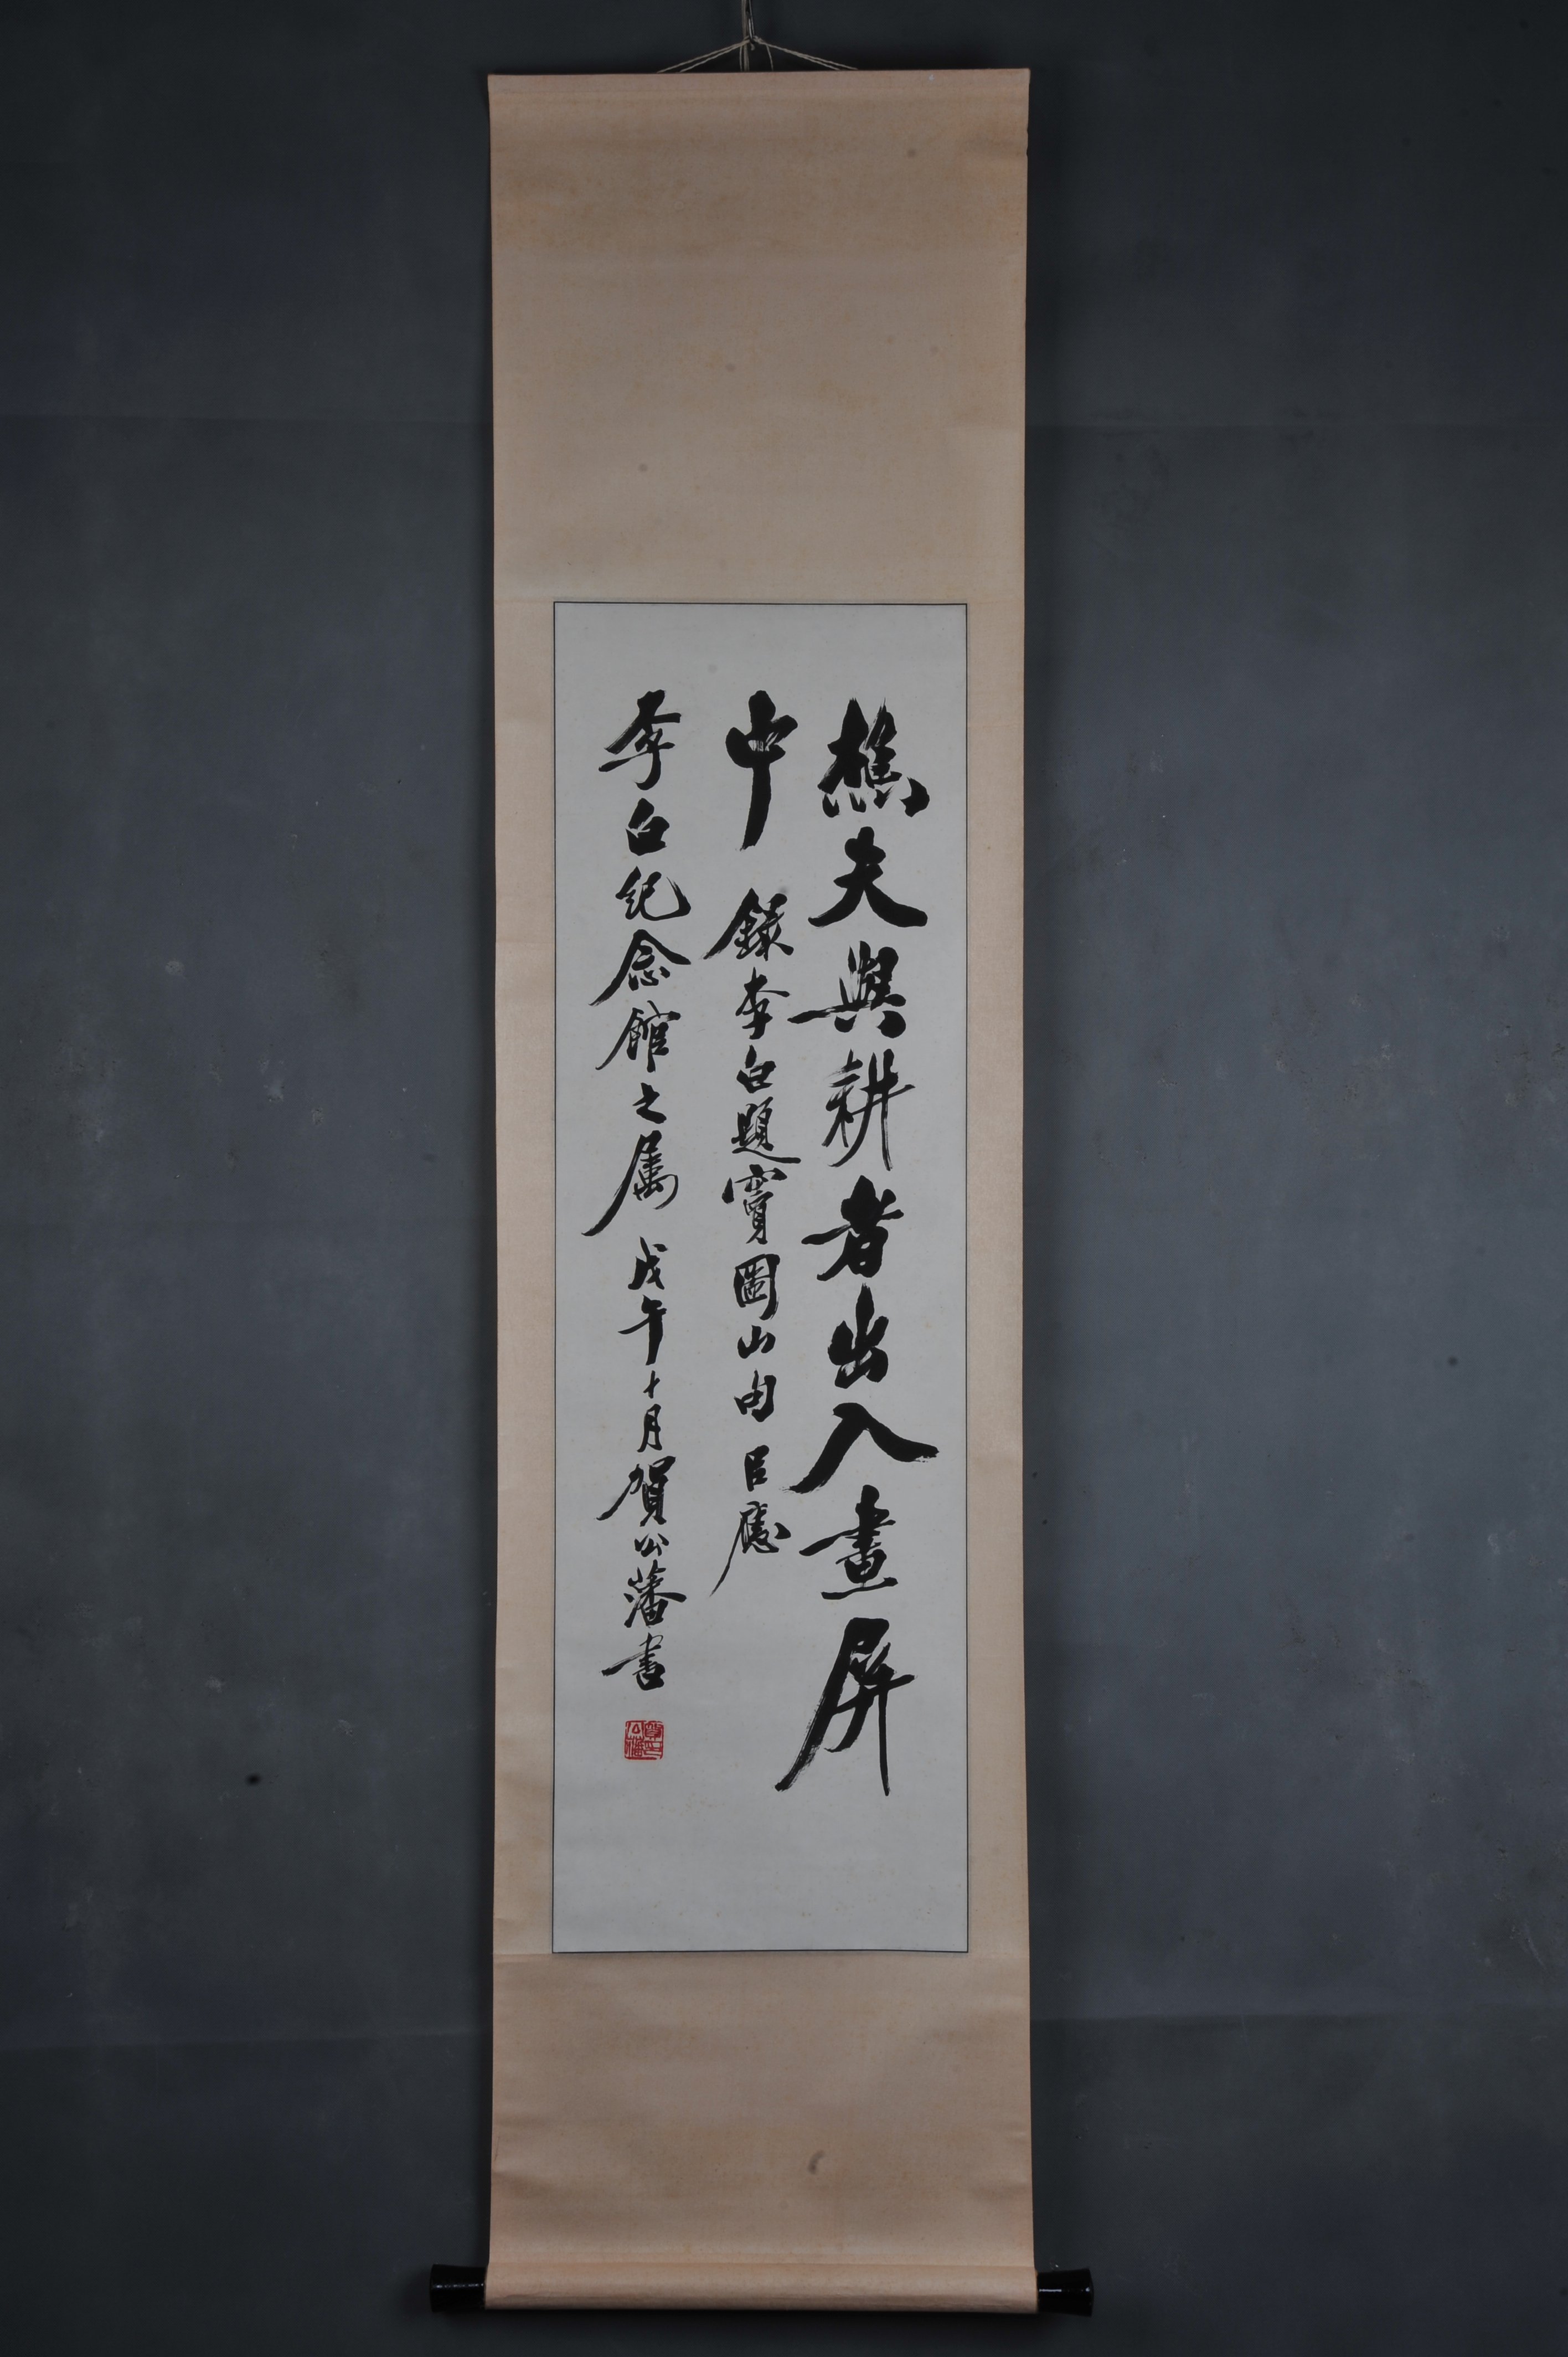 樵夫與耕者出入畫屏
中 錄李白題竇圌山句 以應
李白紀念館之屬 戊午十月賀公藩書